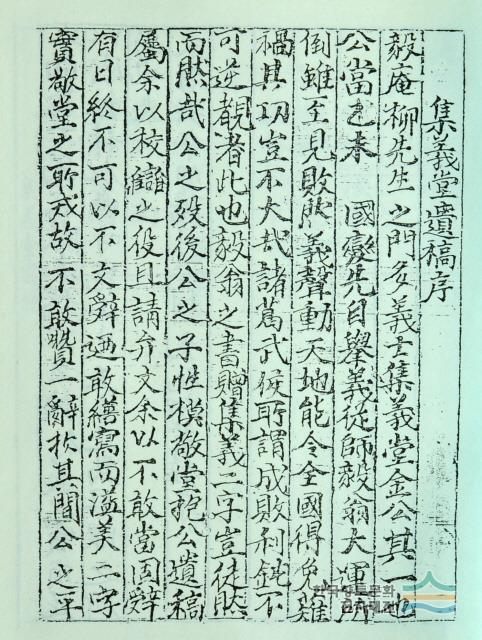 集義堂遺稿序
毅庵柳先生之門多義士集義堂金公其一也
公當乙未 國變先自擧義從師毅翁大運所
倒雖至見敗然義聲動天地能令全國得免
禍其功豈不大哉諸葛武侯所謂成敗利鈍不
可逆覩者此也毅翁之書贈集義二字豈徒然
而然哉公之歿後公之子性模敬堂抱公遺稿
屬余以校讎之役且請弁文余以不敢當固辭
有日終不可以不文辭廼敢繕寫而溢美二字
實敬堂之所戒故 不敢贊一辭於其間公之平
한국향토문화
전자대전